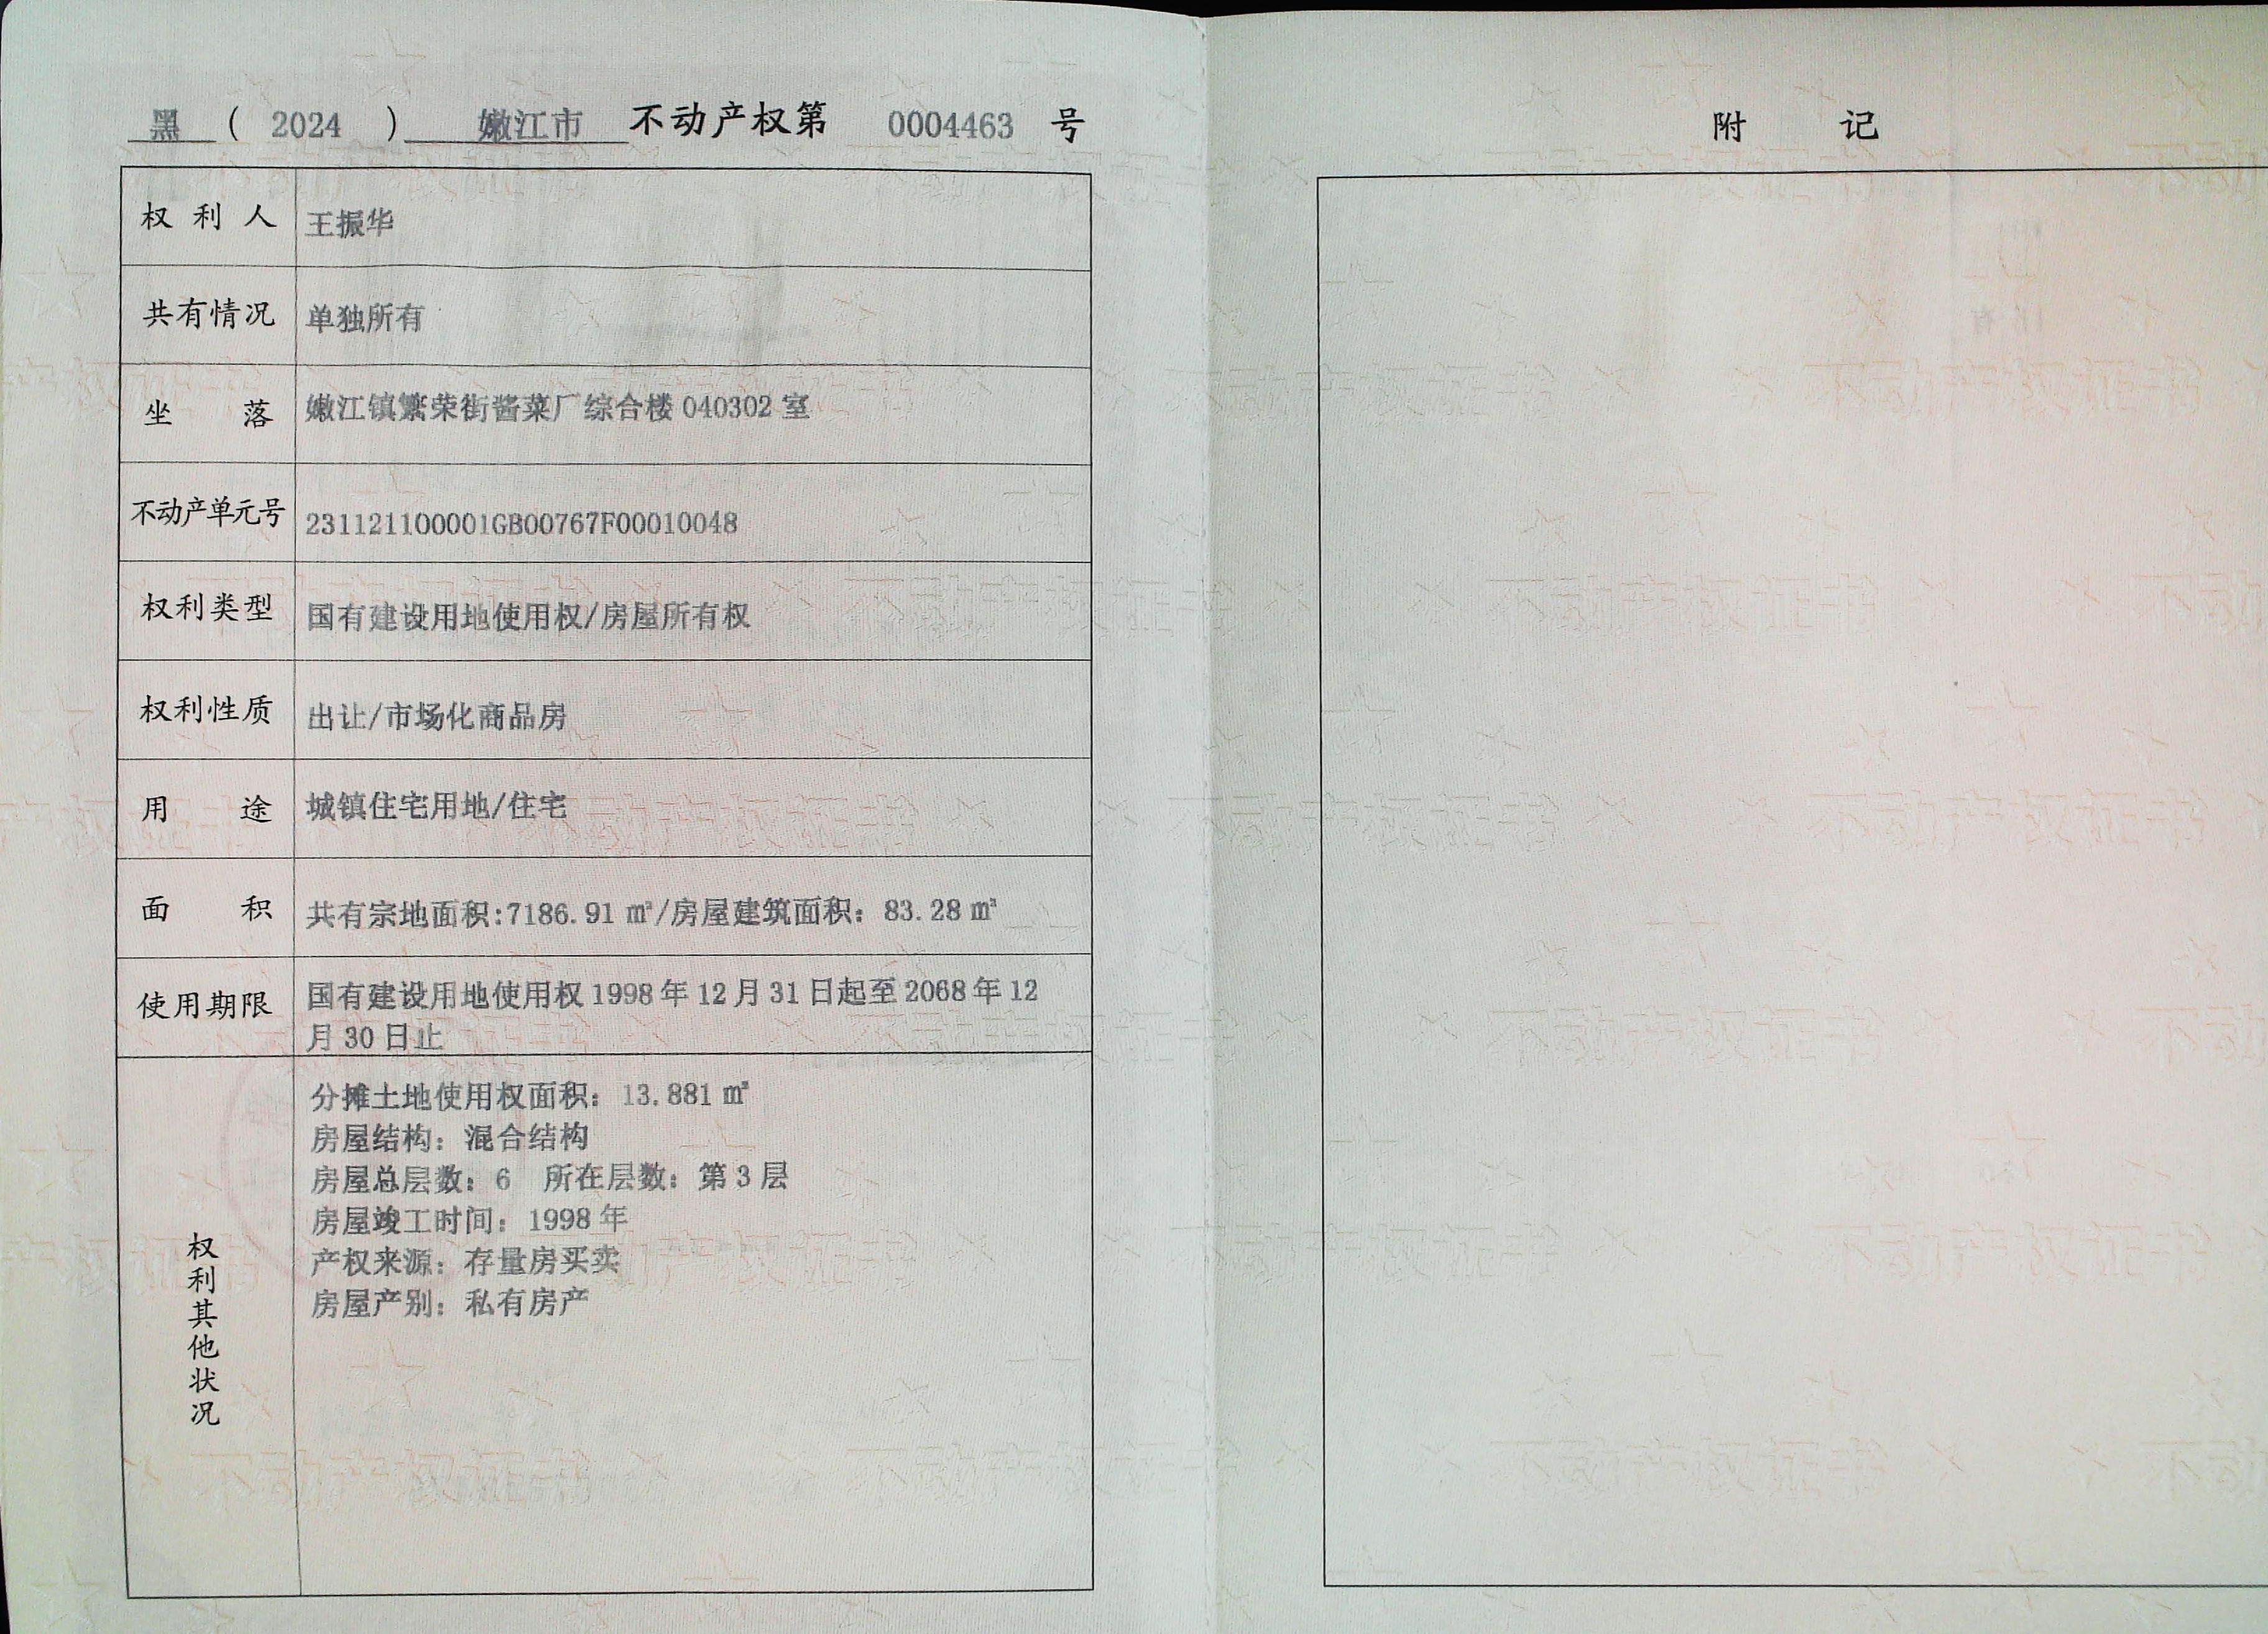 黑 ( 2024 ) 嫩江市 不动产权第 0004463 号
权利人 王振华
共有情况 单独所有
坐落 嫩江镇繁荣街酱菜厂综合楼 040302 室
不动产单元号 231121100001GB00767F00010048
权利类型 国有建设用地使用权/房屋所有权
权利性质 出让/市场化商品房
用途 城镇住宅用地/住宅
面积 共有宗地面积:7186.91 ㎡/房屋建筑面积：83.28 ㎡
使用期限 国有建设用地使用权 1998 年 12 月 31 日起至 2068 年 12
月 30 日止
权利其他状况
分摊土地使用权面积：13.881 ㎡
房屋结构：混合结构
房屋总层数：6 所在层数：第 3 层
房屋竣工时间：1998 年
产权来源：存量房买卖
房屋产别：私有房产
附 记